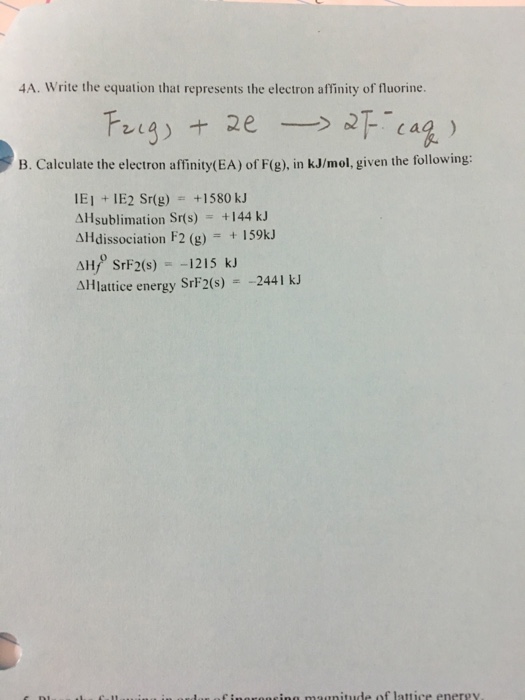 4A. Write the equation that represents the electron affinity of fluorine.
F2(g) + 2e → 2F⁻(aq)
B. Calculate the electron affinity(EA) of F(g), in kJ/mol, given the following:
IE1 + IE2 Sr(g) = +1580 kJ
ΔHsublimation Sr(s) = +144 kJ
ΔHdissociation F2 (g) = + 159kJ
ΔHf° SrF2(s) = -1215 kJ
ΔHlattice energy SrF2(s) = -2441 kJ
magnitude of lattice energy.